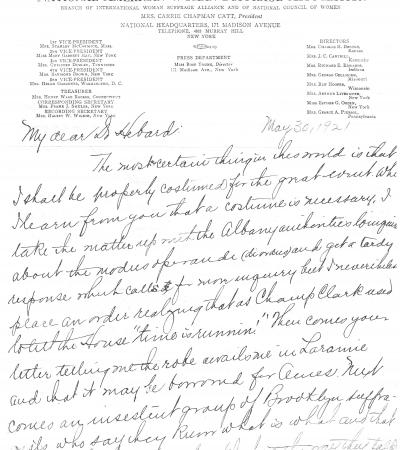 BRANCH OF INTERNATIONAL WOMAN SUFFRAGE ALLIANCE AND OF NATIONAL COUNCIL OF WOMEN
MRS. CARRIE CHAPMAN CATT, President
NATIONAL HEADQUARTERS, 171 MADISON AVENUE
TELEPHONE, MURRAY HILL
NEW YORK
1ST VICE-PRESIDENT
MRS. STANLEY McCORMICK, MASS.
2ND VICE-PRESIDENT
MISS MARY GARRETT HAY, NEW YORK
3RD VICE-PRESIDENT
MRS. GUILFORD DUDLEY, TENNESSEE
4TH VICE-PRESIDENT
MRS. RAYMOND BROWN, NEW YORK
5TH VICE-PRESIDENT
MRS. HELEN GARDENER, WASHINGTON, D.C.
TREASURER
MRS. HENRY WADE ROGERS, CONNECTICUT
CORRESPONDING SECRETARY
MRS. FRANK J. SHULER, NEW YORK
RECORDING SECRETARY
MRS. HALSEY W. WILSON, NEW YORK
PRESS DEPARTMENT
MISS ROSE YOUNG, Director
171 MADISON AVE., NEW YORK
DIRECTORS
MRS. CHARLES H. BROOKS,
KANSAS
MRS. J. C. CANTRILL,
KENTUCKY
MRS. RICHARD E. EDWARDS,
INDIANA
MRS. GEORGE GELLHORN,
MISSOURI
MRS. BEN HOOPER,
WISCONSIN
MRS. ARTHUR LIVERMORE,
NEW YORK
MISS ESTHER G. OGDEN,
NEW YORK
MRS. GEORGE A. PIERSOL,
PENNSYLVANIA
May 30, 1921
My dear Dr Hebard:
The most certain thing in this world is that
I shall be properly costumed for the great event. When
I learn from you that a costume is necessary, I
take the matter up with the Albany authorities to inquire
about the modus operandi and get a tardy
response which calls for more inquiry but I nevertheless
place an order realizing that as Champ Clark used
to tell the House "time is runnin'." Then comes your
letter telling me the robe awaits me in Laramie
and that it may be borrowed for Ames. Next
comes an insistent group of Brooklyn suffra-
gists who say they know what is what and that